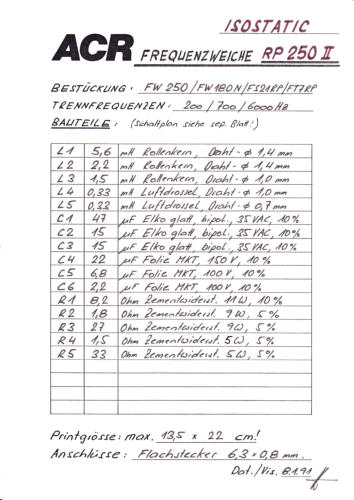 ISOSTATIC
ACR FREQUENZWEICHE RP 250 II
BESTÜCKUNG: FW 250/FW180N/FS21RP/FT7RP
TRENNFREQUENZEN: 200/700/6000 Hz
BAUTEILE: (Schaltplan siehe sep. Blatt!)
L1 5,6 mH Rollenkern, Draht-ø 1,4 mm
L2 2,2 mH Rollenkern, Draht-ø 1,4 mm
L3 1,5 mH Rollenkern, Draht-ø 1,0 mm
L4 0,33 mH Luftdrossel, Draht-ø 1,0 mm
L5 0,33 mH Luftdrossel, Draht-ø 0,7 mm
C1 47 µF Elko glatt, bipol., 35 VAC, 10%
C2 15 µF Elko glatt, bipol., 35 VAC, 10%
C3 15 µF Elko glatt, bipol., 35 VAC, 10%
C4 22 µF Folie MKT, 150 V, 10%
C5 6,8 µF Folie MKT, 100 V, 10%
C6 2,2 µF Folie MKT, 100 V, 10%
R1 8,2 Ohm Zementwiderst. 11W, 10%
R2 1,8 Ohm Zementwiderst. 9W, 5%
R3 27 Ohm Zementwiderst. 9W, 5%
R4 1,5 Ohm Zementwiderst. 5W, 5%
R5 33 Ohm Zementwiderst. 5W, 5%
Printgrösse: max. 13,5 x 22 cm!
Anschlüsse: Flachstecker 6,3 x 0,8 mm.
Dat./Vis. 8.1.91